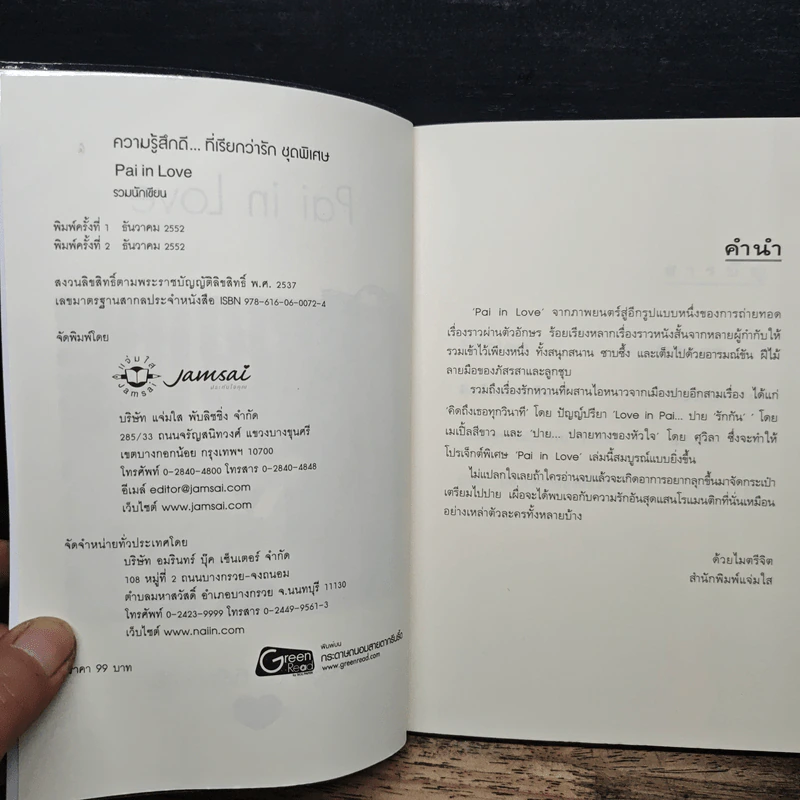 ความรู้สึกดี... ที่เรียกว่ารัก ชุดพิเศษ
Pai in Love
รวมนักเขียน
พิมพ์ครั้งที่ 1 ธันวาคม 2552
พิมพ์ครั้งที่ 2 ธันวาคม 2552
สงวนลิขสิทธิ์ตามพระราชบัญญัติลิขสิทธิ์ พ.ศ. 2537
เลขมาตรฐานสากลประจำหนังสือ ISBN 978-616-06-0072-4
จัดพิมพ์โดย
แจ่มใส
Jamsai
Jamsai
บริษัท แจ่มใส พับลิชชิ่ง จำกัด
285/33 ถนนจรัญสนิทวงศ์ แขวงบางขุนศรี
เขตบางกอกน้อย กรุงเทพฯ 10700
โทรศัพท์ 0-2840-4800 โทรสาร 0-2840-4848
อีเมล์ editor@jamsai.com
เว็บไซต์ www.jamsai.com
จัดจำหน่ายทั่วประเทศโดย
บริษัท อมรินทร์ บุ๊ค เซ็นเตอร์ จำกัด
108 หมู่ที่ 2 ถนนบางกรวย-จงถนอม
ตำบลมหาสวัสดิ์ อำเภอบางกรวย จ.นนทบุรี 11130
โทรศัพท์ 0-2423-9999 โทรสาร 0-2449-9561-3
เว็บไซต์ www.naiin.com
Green Read
พิมพ์บน
กระดาษถนอมสายตากรีนรี้ด
www.greenread.com
ราคา 99 บาท
คำนำ
'Pai in Love' จากภาพยนตร์สู่อีกรูปแบบหนึ่งของการถ่ายทอด
เรื่องราวผ่านตัวอักษร ร้อยเรียงหลากเรื่องราวหนังสั้นจากหลายผู้กำกับให้
รวมเข้าไว้เพียงหนึ่ง ทั้งสนุกสนาน ซาบซึ้ง และเต็มไปด้วยอารมณ์ขัน ฝีไม้
ลายมือของภัสรสาและลูกชุบ
รวมถึงเรื่องรักหวานที่ผสานไอหนาวจากเมืองปายอีกสามเรื่อง ได้แก่
'คิดถึงเธอทุกวินาที' โดย ปัญญ์ปรียา 'Love in Pai... ปาย 'รักกัน' ' โดย
เมเปิ้ลสีขาว และ 'ปาย... ปลายทางของหัวใจ' โดย ศุวิลา ซึ่งจะทำให้
โปรเจ็กต์พิเศษ 'Pai in Love' เล่มนี้สมบูรณ์แบบยิ่งขึ้น
ไม่แปลกใจเลยถ้าใครอ่านจบแล้วจะเกิดอาการอยากลุกขึ้นมาจัดกระเป๋า
เตรียมไปปาย เผื่อจะได้พบเจอกับความรักอันสุดแสนโรแมนติกที่นั่นเหมือน
อย่างเหล่าตัวละครทั้งหลายบ้าง
ด้วยไมตรีจิต
สำนักพิมพ์แจ่มใส